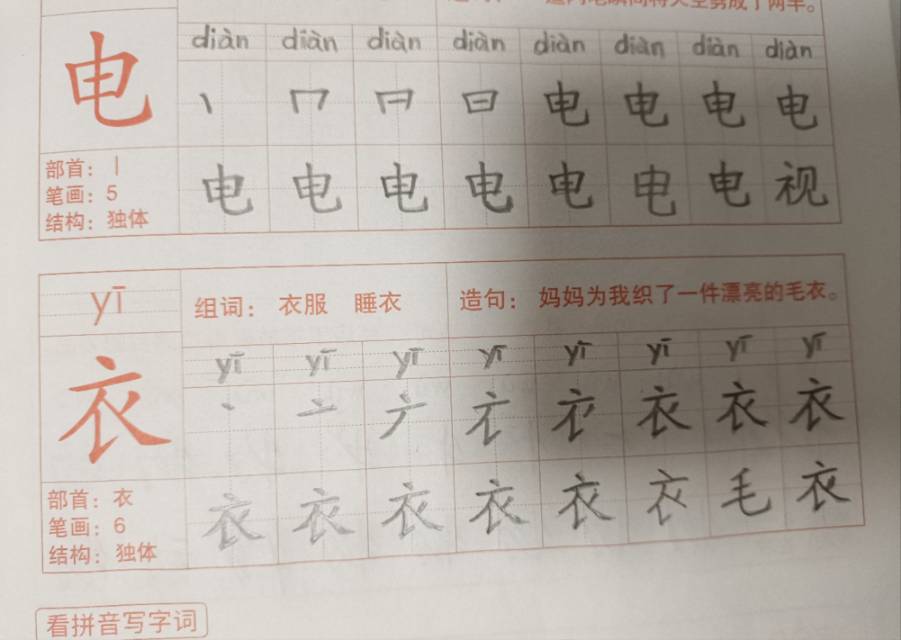 diàn diàn diàn diàn diàn diàn diàn diàn
电 丶 冂 日 电 电 电 电
部首：丨
笔画：5
结构：独体
电 电 电 电 电 电 电 视
yī 组词： 衣服 睡衣 造句： 妈妈为我织了一件漂亮的毛衣。
yī yī yī yī yī yī yī yī
衣 丶 亠 衣 衣 衣
部首：衣
笔画：6
结构：独体
衣 衣 衣 衣 衣 衣 毛 衣
看拼音写字词